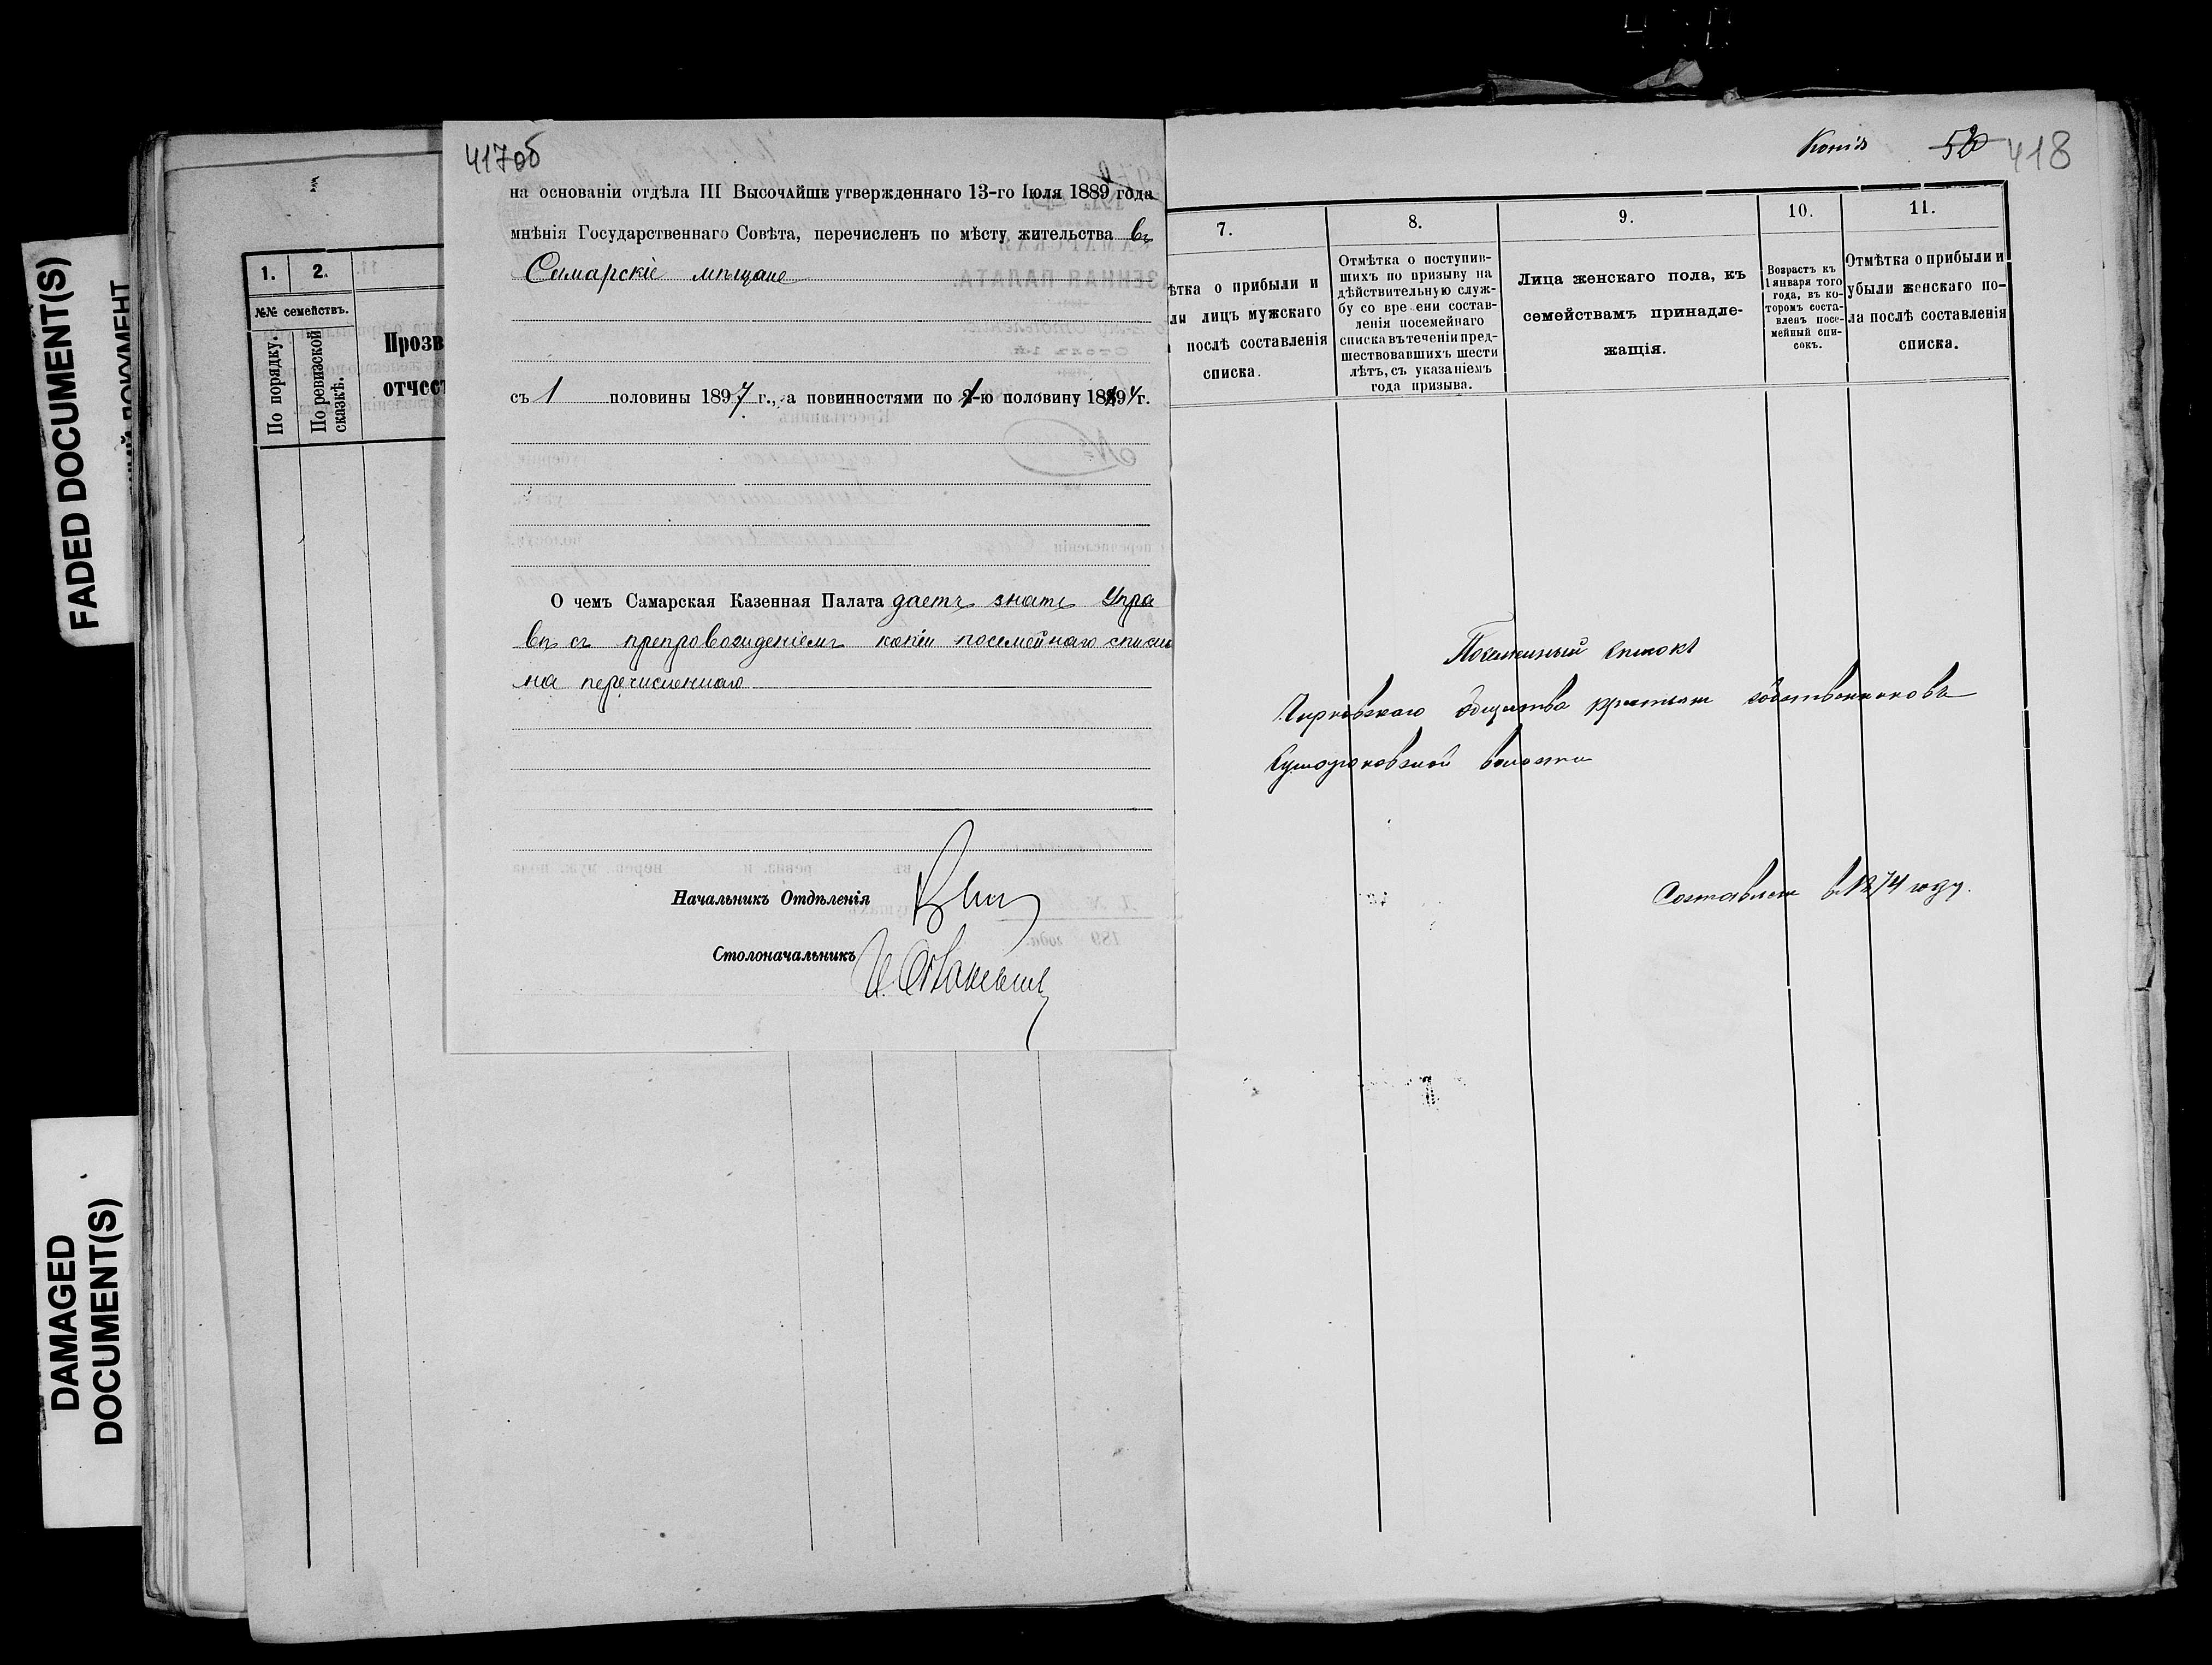 FADED DOCUMENT(S)
DAMAGED
DOCUMENT(S)
417об
на основаніи отдѣла III Высочайше утвержденнаго 13-го Іюля 1889 года
мнѣнія Государственнаго Совѣта, перечисленъ по мѣсту жительства въ
Самарскіе мѣщане
съ 1 половины 1897 г., а повинностями по половину г.
О чемъ Самарская Казенная Палата даетъ знать Упра
вѣ съ препровожденіемъ копіи посемейнаго списка
на перечисленнаго
Начальникъ Отдѣленія
Столоначальникъ
1. 2.
№№ семействъ.
По порядку.
По ревизской
сказкѣ.
Прозв
отчест
Копія 418
7. 8. 9. 10. 11.
ѣтка о прибыли и
ли лицъ мужскаго
послѣ составленія
списка.
Отмѣтка о поступив-
шихъ по призыву на
дѣйствительную служ-
бу со вре ени состав-
ленія посемейнаго
списка въ теченіи пред-
шествовавшихъ шести
лѣтъ, съ указаніемъ
года призыва.
Лица женскаго пола, къ
семействамъ принадле-
жащія.
Возрастъ къ
1 января того
года, въ ко-
торомъ соста-
вленъ посе-
мейный спи-
сокъ.
Отмѣтка о прибыли и
убыли женскаго по-
ла послѣ составленія
списка.
Посемейный списокъ
общества крестьян собственниковъ
волости
Составлен в 1874 году.